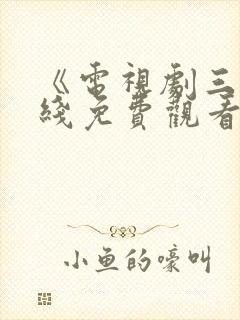 《電視劇三
綫免費觀看
小魚的嚎叫